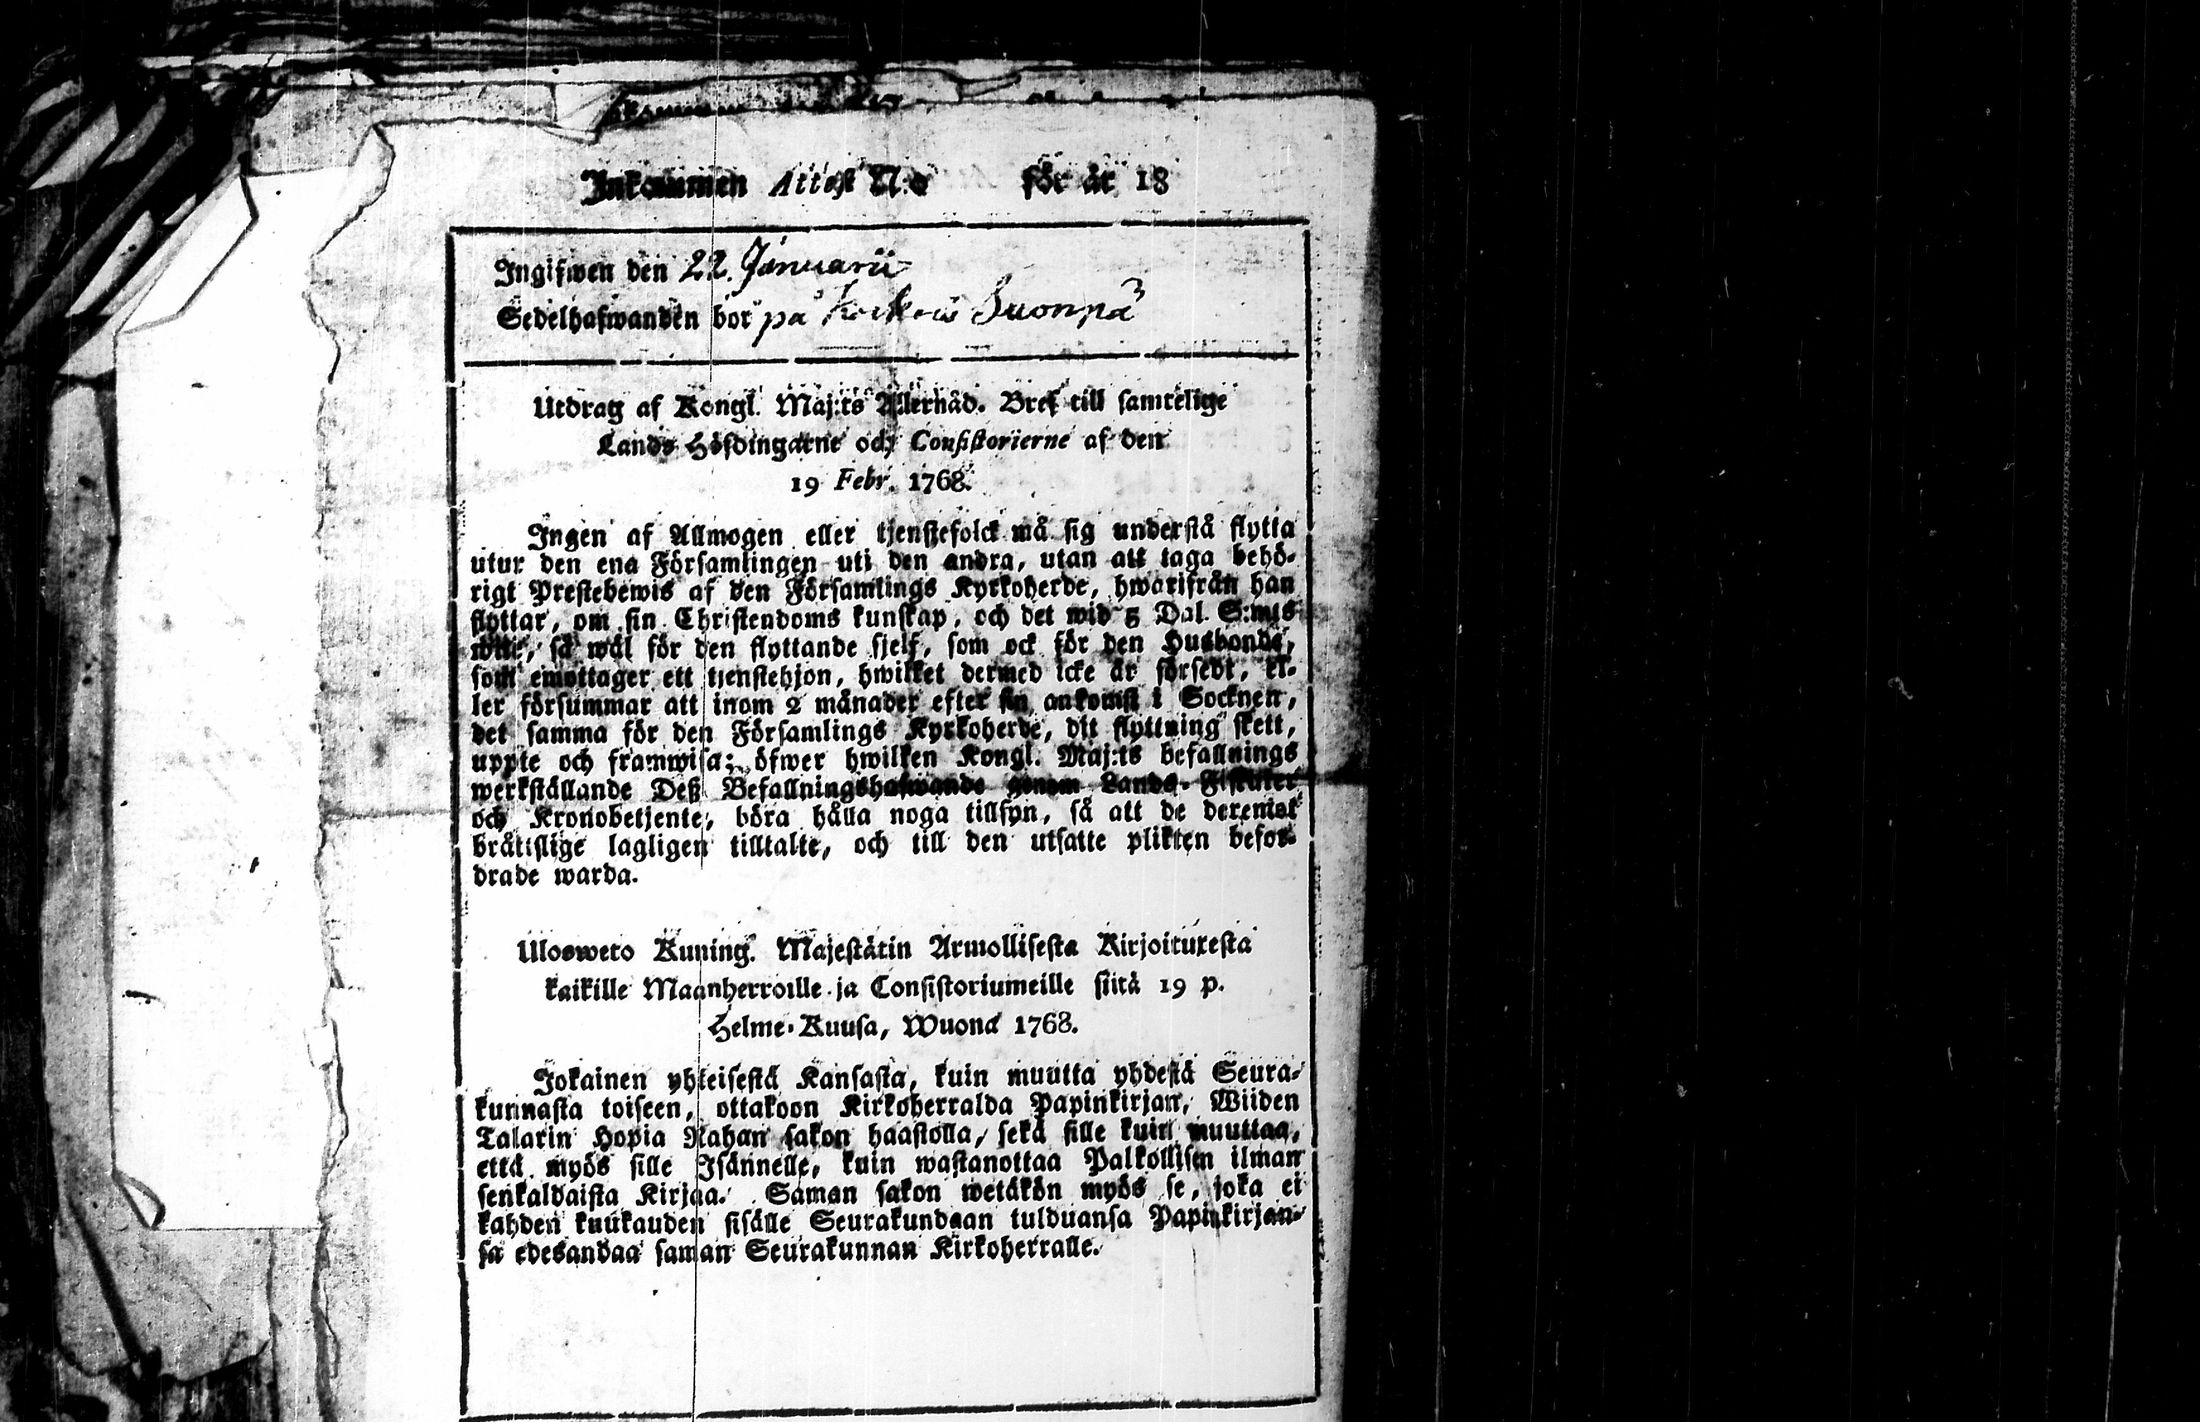 Inkommen Attest N:o för år 18
Ingifwen den 22. Januarii
Sedelhafwanden bor på Suonpä
Utdrag af Kongl. Maj:ts Allernåd. Bref till samtelige
Lands Höfdingarne och Consistorierne af den
19 Febr. 1768.
Ingen af Allmogen eller tjenstefolck må sig understå flytta
utur den ena Församlingen uti den andra, utan att taga behö-
rigt Prestebewis af den Församlings Kyrkoherde, hwarifrån han
flyttar, om sin Christendoms kunskap, och det wid 5 Dal. S:mts
wite, så wäl för den flyttande sjelf, som ock för den Husbonde,
som emottager ett tjenstehjon, hwilket dermed icke är försedt, el-
ler försummar att inom 2 månader efter sin ankomst i Socknen,
det samma för den Församlings Kyrkoherde, dit flyttning skett,
uppte och framwisa; öfwer hwilken Kongl. Maj:ts befallnings
werkställande Deß Befallningshafwande genom Lands-Fiskaler
och Kronobetjente, böra hålla noga tillsyn, så att de deremot
bråtislige lagligen tilltalte, och till den utsatte plikten befor-
drade warda.
Ulosweto Kuning. Majestätin Armollisesta Kirjoituxesta
kaikille Maanherroille ja Consistoriumeille siitä 19 p.
Helme-Kuusa, Wuona 1768.
Jokainen yhteisestä Kansasta, kuin muutta yhdestä Seura-
kunnasta toiseen, ottakoon Kirkoherralda Papinkirjan, Wiiden
Talarin Hopia Rahan sakon haastolla, sekä sille kuin muuttaa,
että myös sille Isännelle, kuin wastanottaa Palkollisen ilman
senkaldaista Kirjaa. Saman sakon wetäkön myös se, joka ei
kahden kuukauden sisälle Seurakundaan tulduansa Papinkirjan-
sa edesandaa saman Seurakunnan Kirkoherralle.